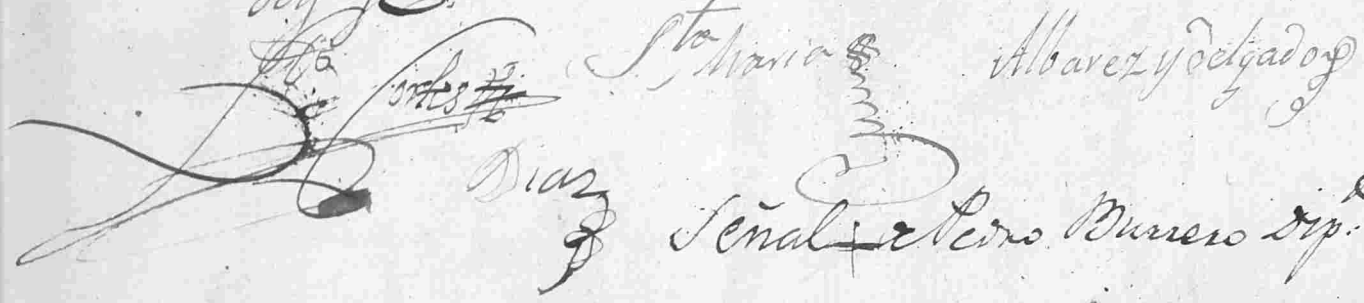 Cortes Sta Maria Albarez y Delgado
Diaz
Señal + de Pedro Burrero Dip.do